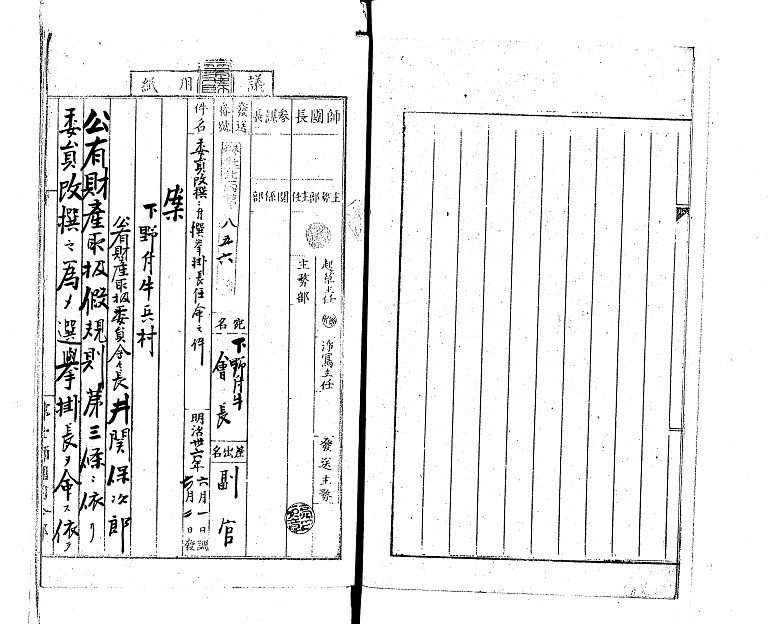 議用紙
師團長
參謀長
發送番號
主務部主任
關係部
八五六
起草主任
淨寫主任
發送主務
主務部
宛名
下野付牛會長
差出名
副官
件名
委員改撰ニ付撰挙掛長任命之件
明治卅六年六月一日訓
七月二日發
案
下野付牛兵村
公有財産取扱委員会々長井関保次郎
公有財産取扱假規則第三條ニ依リ
委員改撰之為メ選挙掛長ヲ命ス依テ